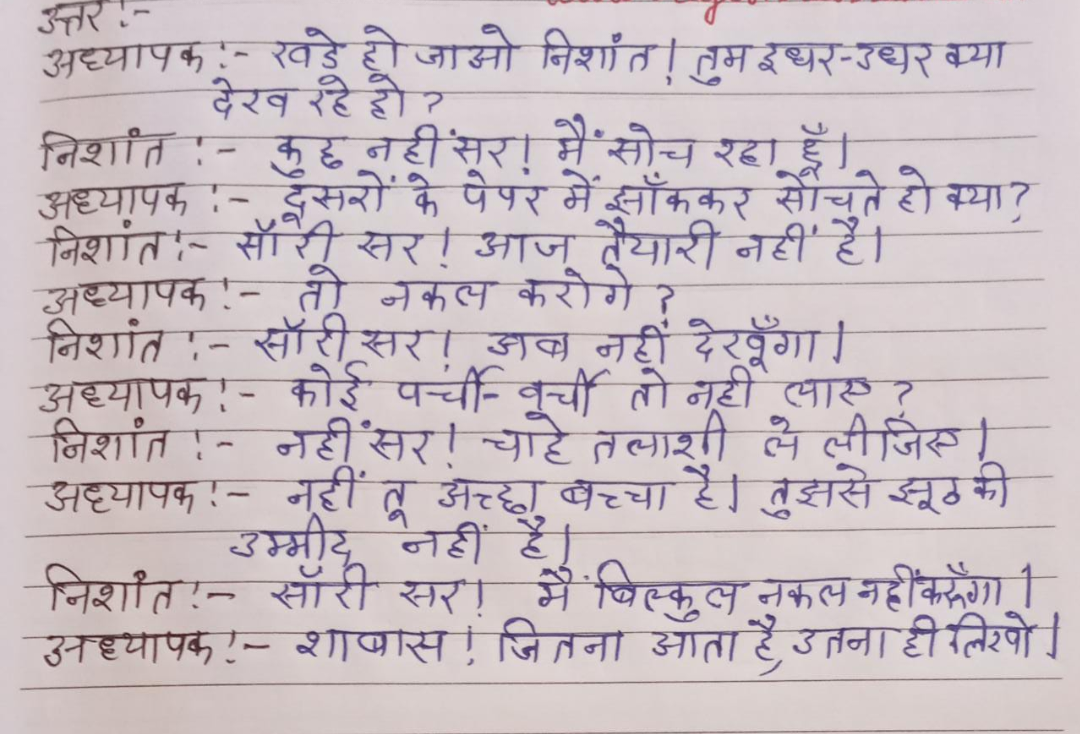 उत्तर :-
अध्यापक :- खडे हो जाओ निशांत! तुम इधर-उधर क्या
देख रहे हो?
निशांत :- कुछ नहीं सर! मैं सोच रहा हूँ।
अध्यापक :- दूसरों के पेपर में झाँककर सोचते हो क्या?
निशांत :- सॉरी सर! आज तैयारी नहीं है।
अध्यापक :- तो नकल करोगे?
निशांत :- सॉरी सर! अब नहीं देखूँगा।
अध्यापक :- कोई पर्ची-वर्ची तो नही लाए?
निशांत :- नहीं सर! चाहे तलाशी ले लीजिए।
अध्यापक :- नहीं तू अच्छा बच्चा है। तुझसे झूठ की
उम्मीद नहीं है।
निशांत :- सॉरी सर! मैं बिल्कुल नकल नहीं करूँगा।
अध्यापक :- शाबास! जितना आता है, उतना ही लिखो।